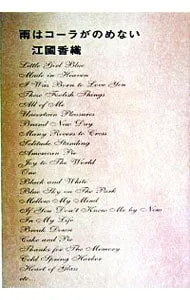 雨はコーラがのめない
江國香織
Little Girl Blue
Made in Heaven
I Was Born to Love You
These Foolish Things
All of Me
Uncertain Pleasures
Brand New Day
Many Rivers to Cross
Solitude Standing
American Pie
Joy to The World
One
Black and White
Blue Sky on The Park
Mellow My Mind
If You Don't Know Me by Now
In My Life
Break Down
Cake and Pie
Thanks for The Memory
Cold Spring Harbor
Heart of Glass
etc.